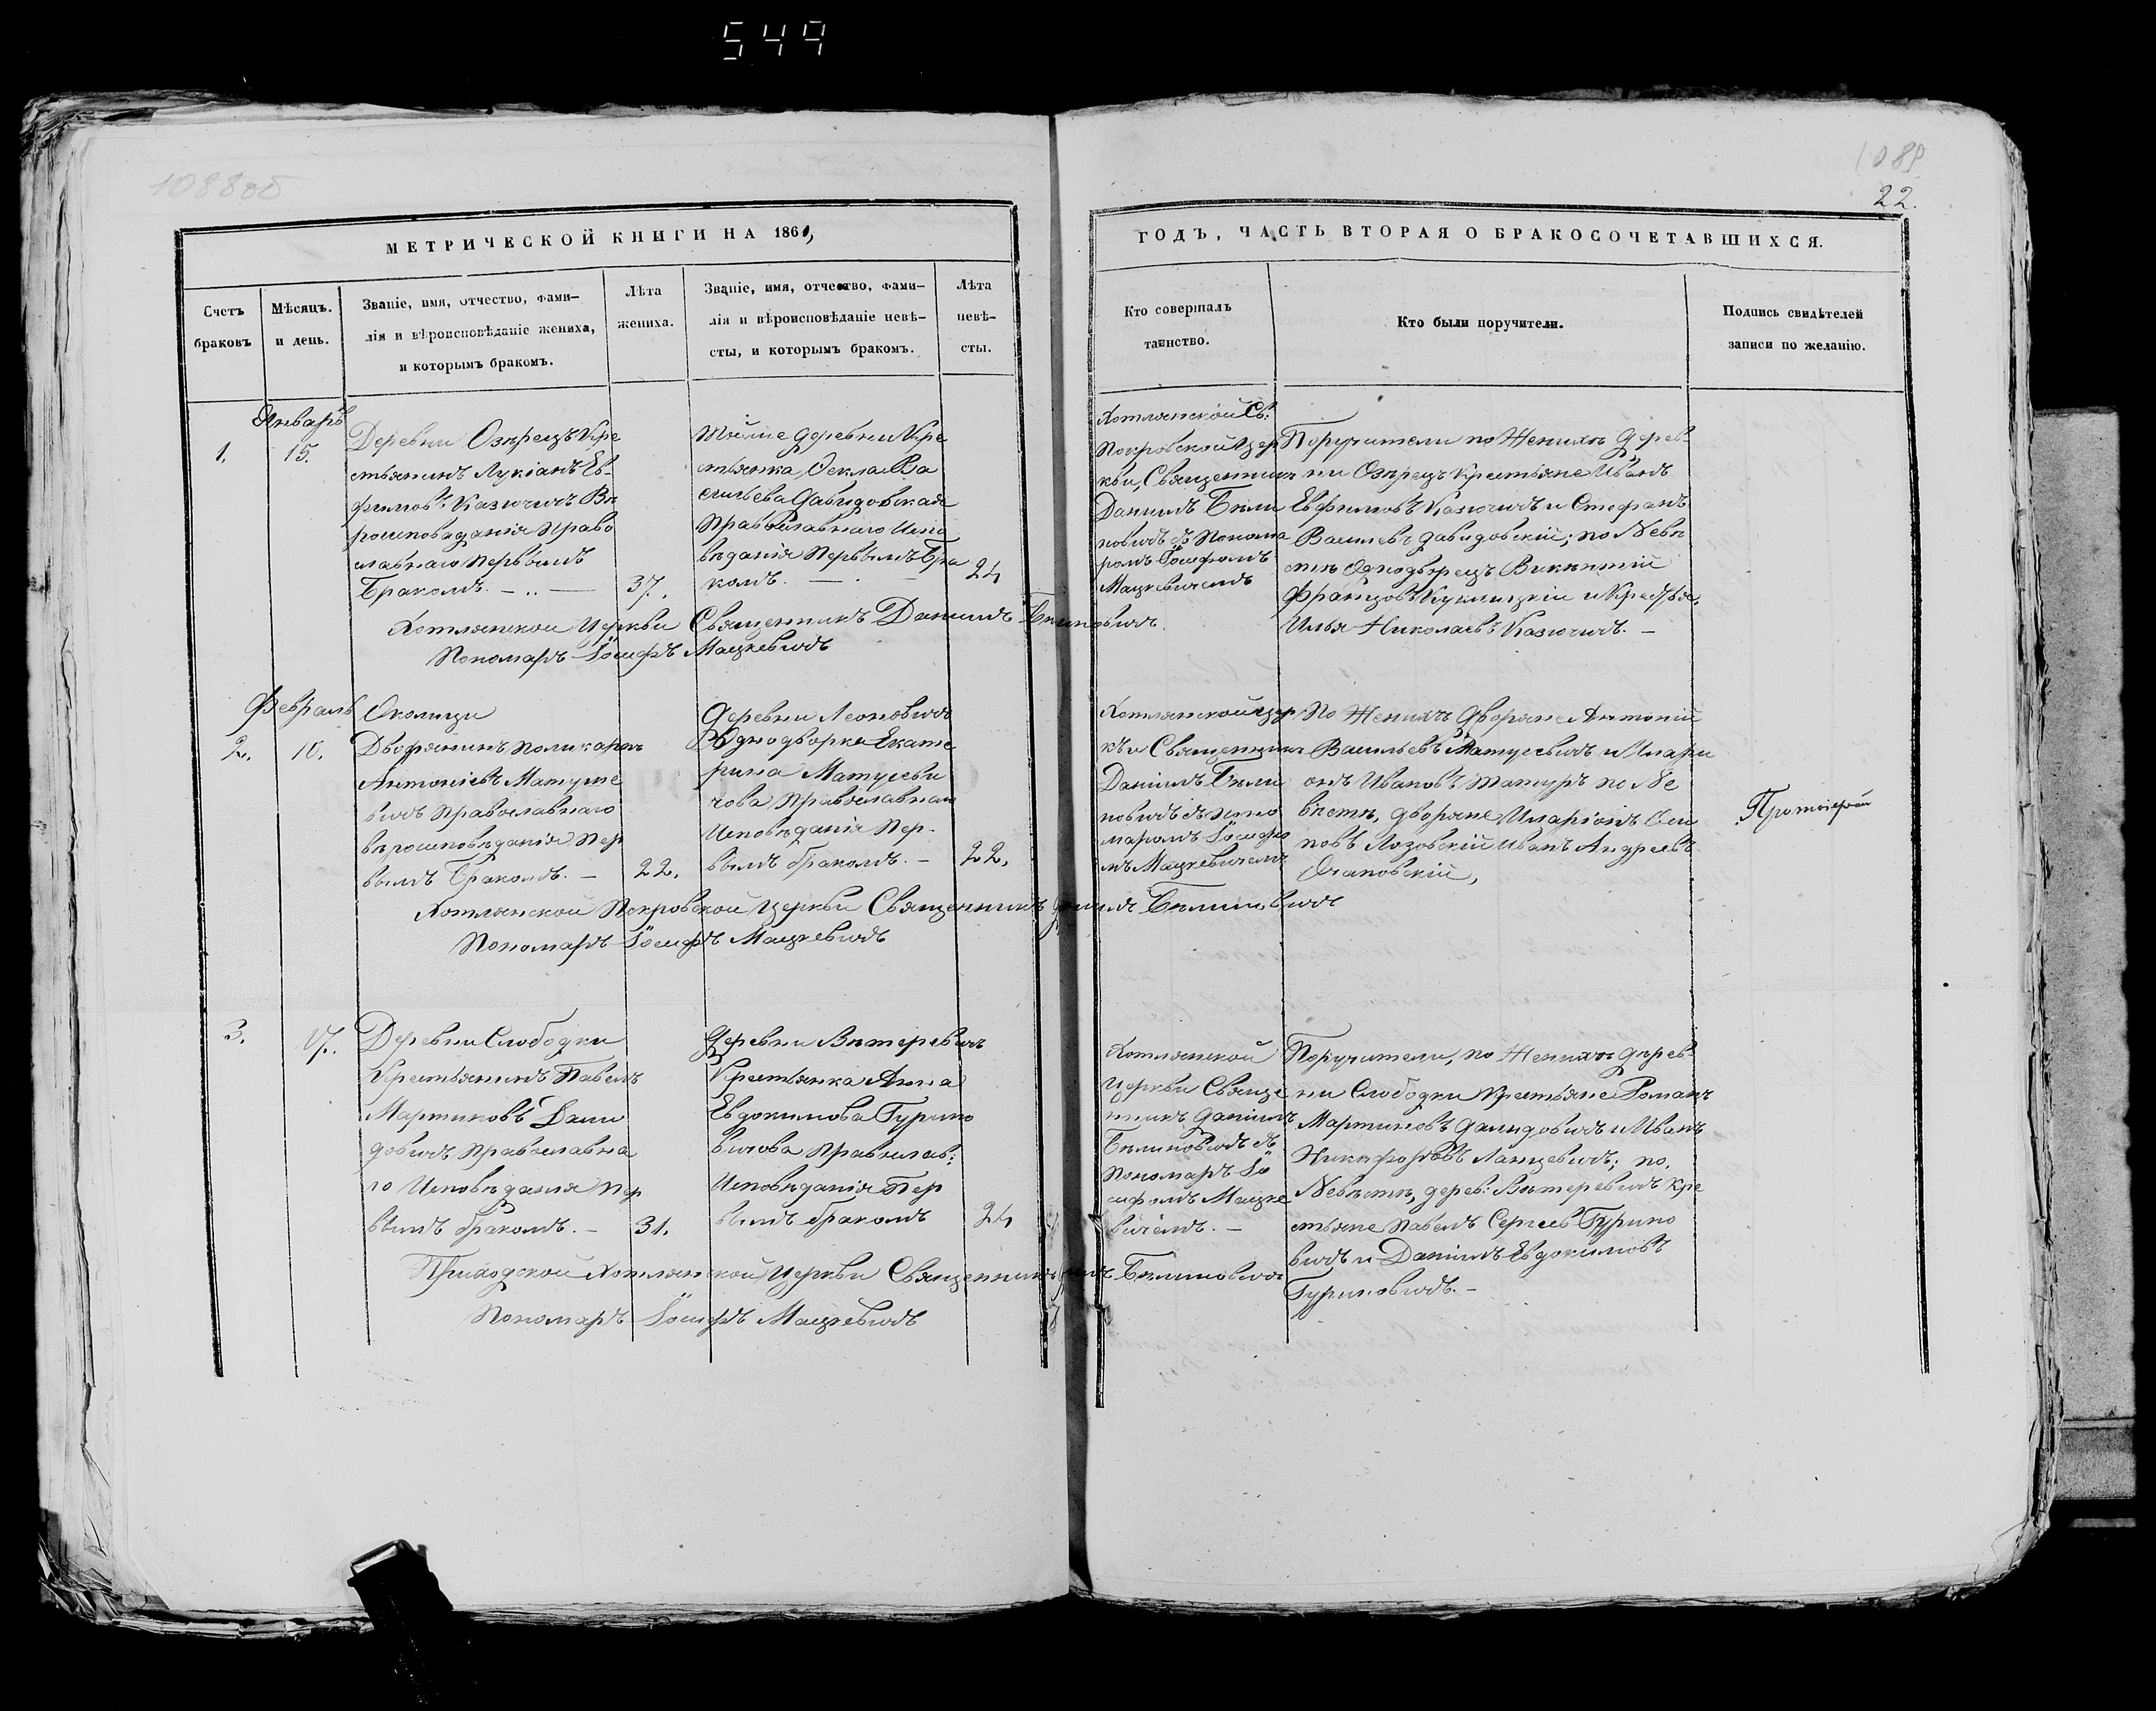 549
1088об
1089
22.
МЕТРИЧЕСКОЙ КНИГИ НА 1861,
ГОДЪ, ЧАСТЬ ВТОРАЯ О БРАКОСОЧЕТАВШИХСЯ.
Счетъ
браковъ
Мѣсяцъ.
и день.
Званіе, имя, отчество, фами-
лія и вѣроисповѣданіе жениха,
и которымъ бракомъ.
Лѣта
жениха.
Званіе, имя, отчество, фами-
лія и вѣроисповѣданіе невѣ-
сты, и которымъ бракомъ.
Лѣта
невѣ-
сты.
Кто совершалъ
таинство.
Кто были поручители.
Подпись свидѣтелей
записи по желанію.
Январь
1.
15.
Деревни Озерецъ Кре
стьянинъ Лукіанъ Ев-
фимовъ Казючичъ Вѣ
роисповѣданія Право
славнаго Первымъ
Бракомъ. —
37.
Тойже деревни Кре
стьянка Ѳекла Ва
сильева Давидовская
Православнаго Испо
вѣданія Первымъ Бра
комъ. —
24
Хотлянской Св:
Покровской Цер
кви, Священникъ
Даніилъ Бѣли
новичъ съ Понома
ремъ Іосифомъ
Мацкевичемъ
Поручители по Женихѣ дерев-
ни Озерецъ Крестьяне Иванъ
Евфимовъ Казючичъ и Стефанъ
Васильевъ Давидовскій; по Невѣ
стѣ Однодворецъ Викентій
Францовъ и Крестья.
Илья Николаевъ Казючичъ. —
Хотлянской Церкви Священникъ Даніилъ Бѣлиновичъ
Пономаръ Іосифъ Мацкевичъ
Февраль
2.
10.
Околицы
Дворянинъ Поликарпъ
Антоніевъ Матусе
вичъ Православнаго
вѣроисповѣданія Пер
вымъ Бракомъ. —
22.
Деревни Леоновичъ
Однодворка Екате
рина Матусеви
чова Православнаго
Исповѣданія Пер-
вымъ бракомъ. —
22.
Хотлянской цер
кви Священникъ
Даніилъ Бѣли
новичъ съ Поно
маромъ Іосифо
мъ Мацкевичемъ
По Женихѣ Дворяне Антоній
Васильевъ Матусевичъ и Илари
онъ Ивановъ Татуръ по Не
вѣстѣ, дворяне Иларіонъ Оси
повъ Лозовскій Иванъ Андреевъ
Протоіерей
Хотлянской Покровской Церкви Священникъ Даніилъ Бѣлиновичъ
Пономаръ Іосифъ Мацкевичъ
3.
17.
Деревни Слободки
Крестьянинъ Павелъ
Мартиновъ Дави
довичъ Православна
го Исповѣданія Пер
вымъ бракомъ. —
31.
Деревни Витеревичъ
Крестьянка Анна
Евдокимова Гурино
вичова Православ:
Исповѣданія Пер
вымъ бракомъ
24
Хотлянской
Церкви Свяще
нникъ Даніилъ
Бѣлиновичъ съ
Пономаръ Іо
сифомъ Мацке
вичемъ. —
Поручители, по Женихѣ дерев-
ни Слободки Крестьяне Романъ
Мартиновъ Давидовичъ и Иванъ
Никифоровъ Лапцевичъ; по.
Невѣстѣ, дерев: Витеревичъ Кре
стьяне Павелъ Сергеевъ Гурино
вичъ и Даніилъ Евдокимовъ
Гуриновичъ. —
Приходской Хотлянской Церкви Священникъ Даніилъ Бѣлиновичъ
Пономаръ Іосифъ Мацкевичъ